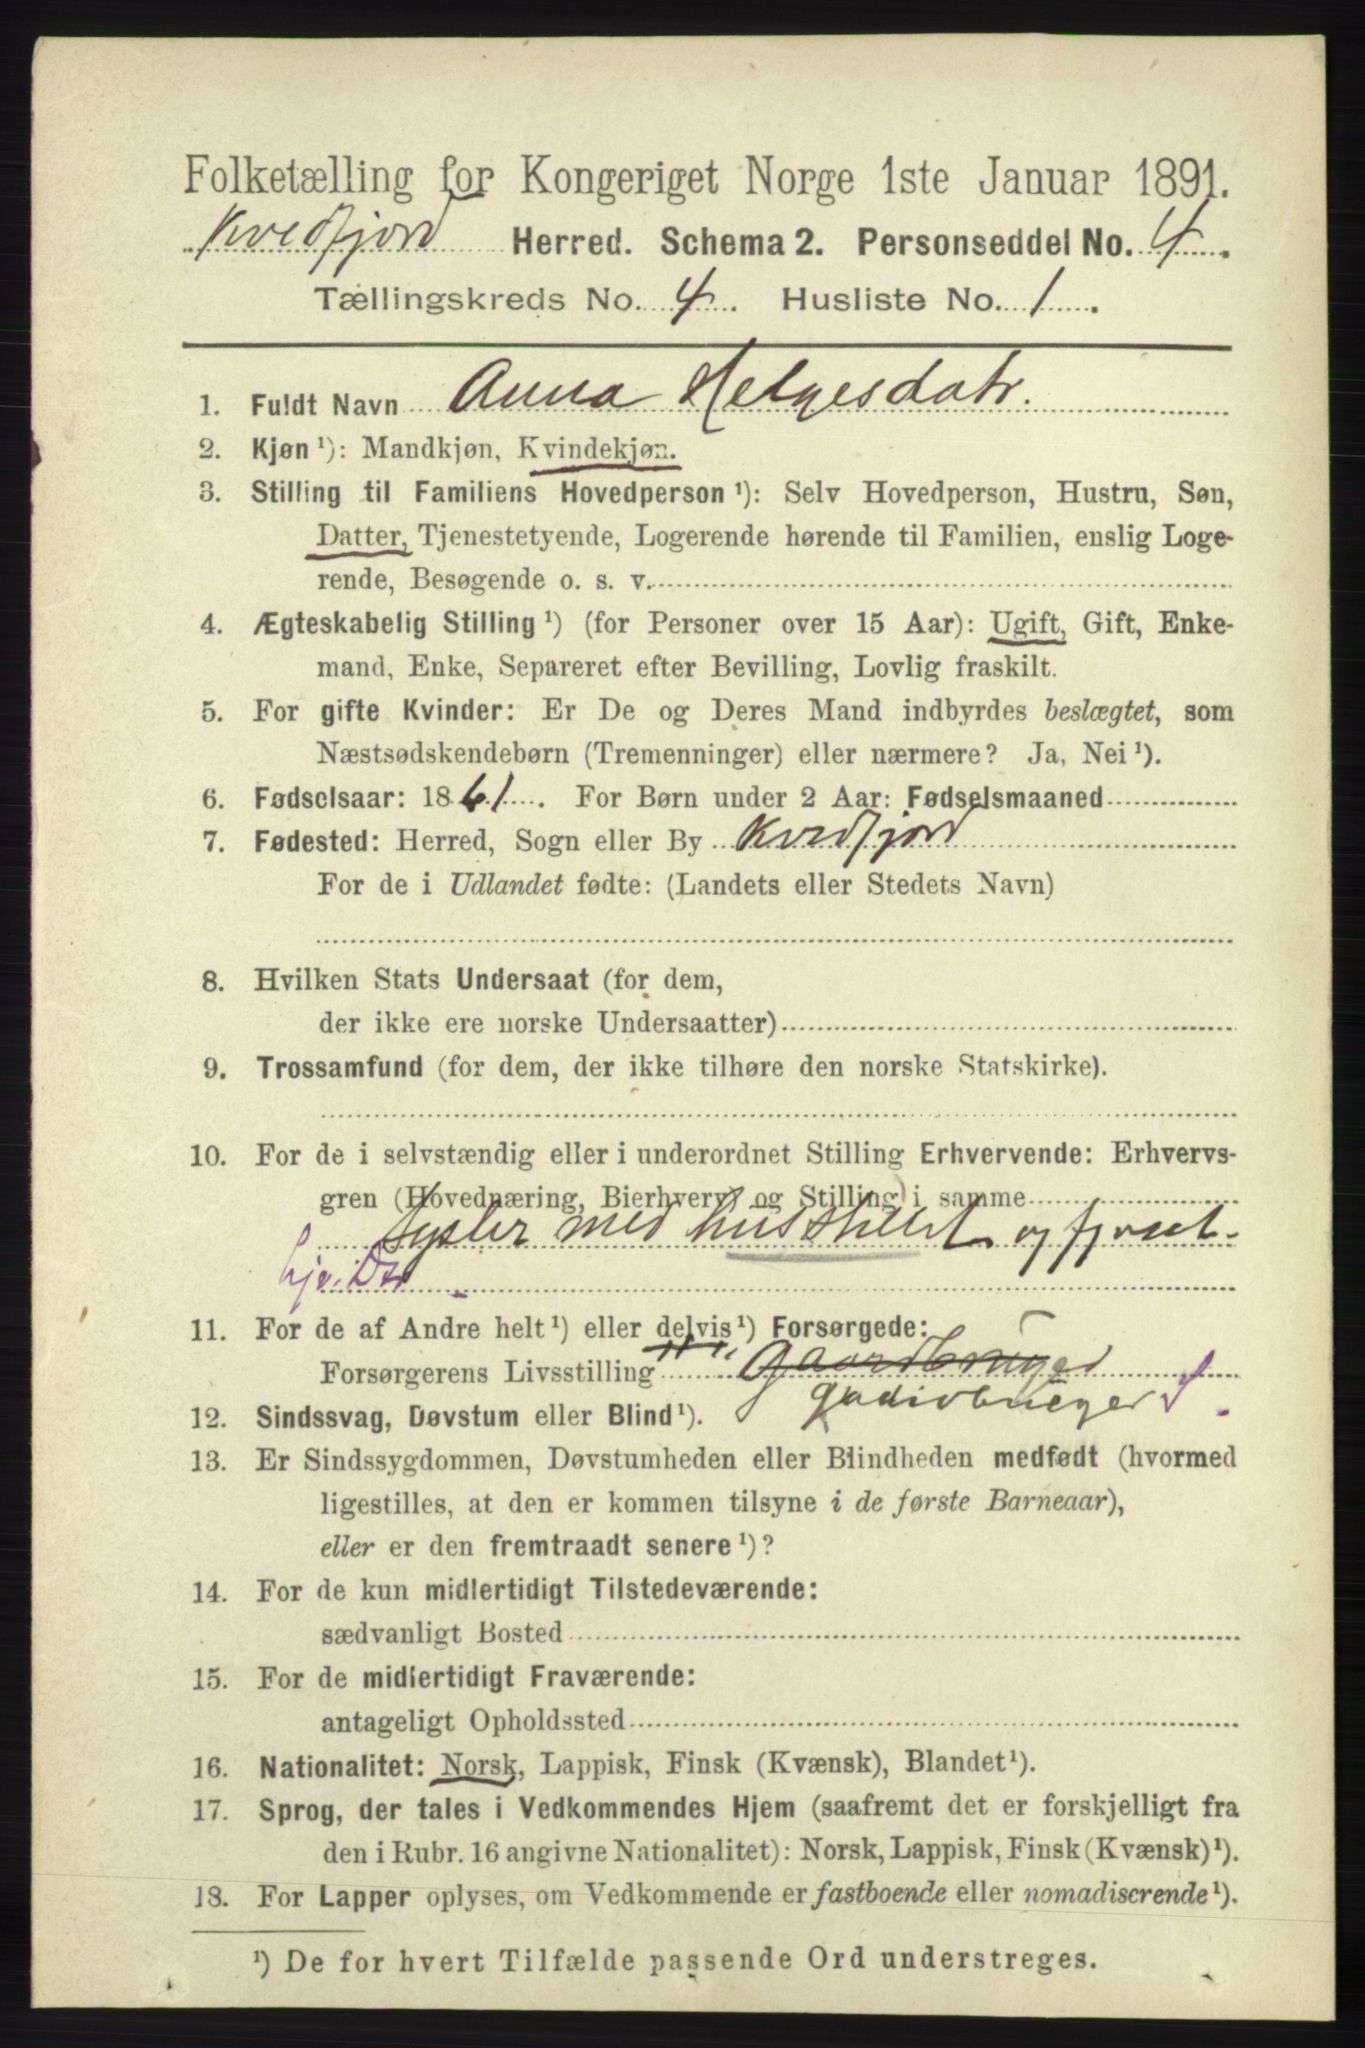 Folketælling for Kongeriget Norge 1ste Januar 1891.
Kvedfjord Herred. Schema 2. Personseddel No. 4.
Tællingskreds No. 4. Husliste No. 1.
1. Fuldt Navn Anna Helgesdatr.
2. Kjøn ¹): Mandkjøn, Kvindekjøn.
3. Stilling til Familiens Hovedperson ¹): Selv Hovedperson, Hustru, Søn,
Datter, Tjenestetyende, Logerende hørende til Familien, enslig Loge-
rende, Besøgende o. s. v.
4. Ægteskabelig Stilling ¹) (for Personer over 15 Aar): Ugift, Gift, Enke-
mand, Enke, Separeret efter Bevilling, Lovlig fraskilt.
5. For gifte Kvinder: Er De og Deres Mand indbyrdes beslægtet, som
Næstsødskendebørn (Tremenninger) eller nærmere? Ja, Nei ¹).
6. Fødselsaar: 1861. For Børn under 2 Aar: Fødselsmaaned
7. Fødested: Herred, Sogn eller By Kvedfjord
For de i Udlandet fødte: (Landets eller Stedets Navn)
8. Hvilken Stats Undersaat (for dem,
der ikke ere norske Undersaatter)
9. Trossamfund (for dem, der ikke tilhøre den norske Statskirke).
10. For de i selvstændig eller i underordnet Stilling Erhvervende: Erhvervs-
gren (Hovednæring, Bierhverv og Stilling) i samme
sysler med husstellet og fjøset.
11. For de af Andre helt ¹) eller delvis ¹) Forsørgede:
Forsørgerens Livsstilling Gaardbruger
gardbruger
12. Sindssvag, Døvstum eller Blind ¹).
13. Er Sindssygdommen, Døvstumheden eller Blindheden medfødt (hvormed
ligestilles, at den er kommen tilsyne i de første Barneaar),
eller er den fremtraadt senere ¹)?
14. For de kun midlertidigt Tilstedeværende:
sædvanligt Bosted
15. For de midlertidigt Fraværende:
antageligt Opholdssted
16. Nationalitet: Norsk, Lappisk, Finsk (Kvænsk), Blandet ¹).
17. Sprog, der tales i Vedkommendes Hjem (saafremt det er forskjelligt fra
den i Rubr. 16 angivne Nationalitet): Norsk, Lappisk, Finsk (Kvænsk) ¹).
18. For Lapper oplyses, om Vedkommende er fastboende eller nomadiserende ¹).
¹) De for hvert Tilfælde passende Ord understreges.